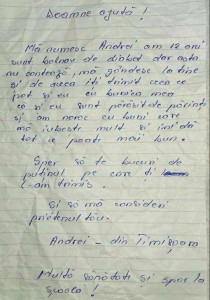 Doamne ajută !
Mă numesc Andrei am 12 ani
sunt bolnav de diabet dar asta
nu contează, mă gândesc la tine
și de aceea îți trimit ceea ce
pot și eu eu bunica mea
că și eu sunt părăsit de părinți
și am noroc cu buni care
mă iubește mult și îmi dă
tot ce poate mai bun.
Sper să te bucuri de
puținul pe care ți
l-am trimis.
Și să mă consideri
prietenul tău.
Andrei – din Timișoara
Multă sănătate și spor la
școală !